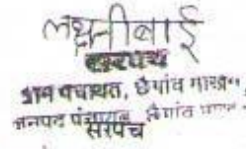 लक्ष्मीबाई
सरपंच
ग्राम पंचायत, छैगांव माखन
जनपद पंचायत छैगांव माखन
सरपंच